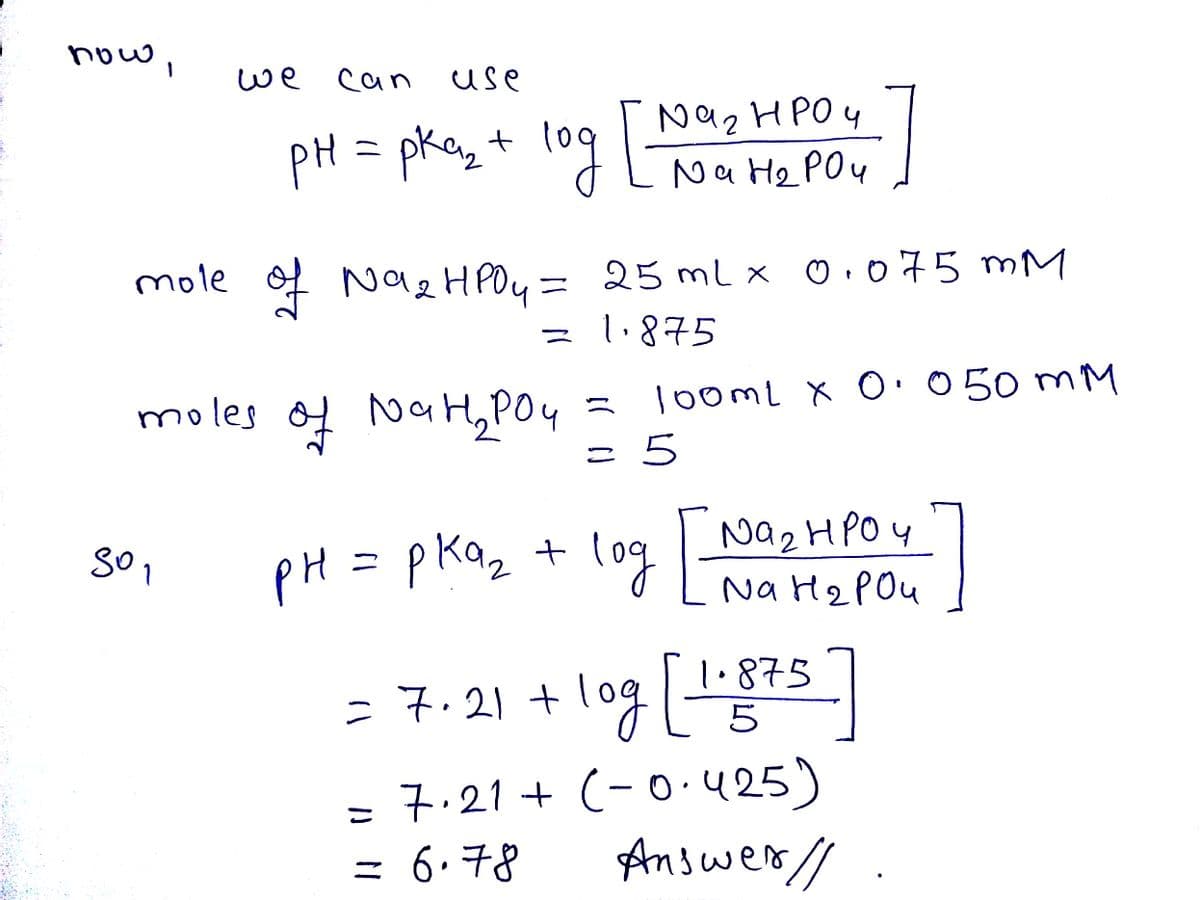 now, we can use
pH = pka₂ + log [Na₂HPO₄ / NaH₂PO₄]
mole of Na₂HPO₄ = 25 mL x 0.075 mM
= 1.875
moles of NaH₂PO₄ = 100mL x 0.050 mM
= 5
so, pH = pKa₂ + log [Na₂HPO₄ / NaH₂PO₄]
= 7.21 + log [1.875 / 5]
= 7.21 + (-0.425)
= 6.78 Answer//.